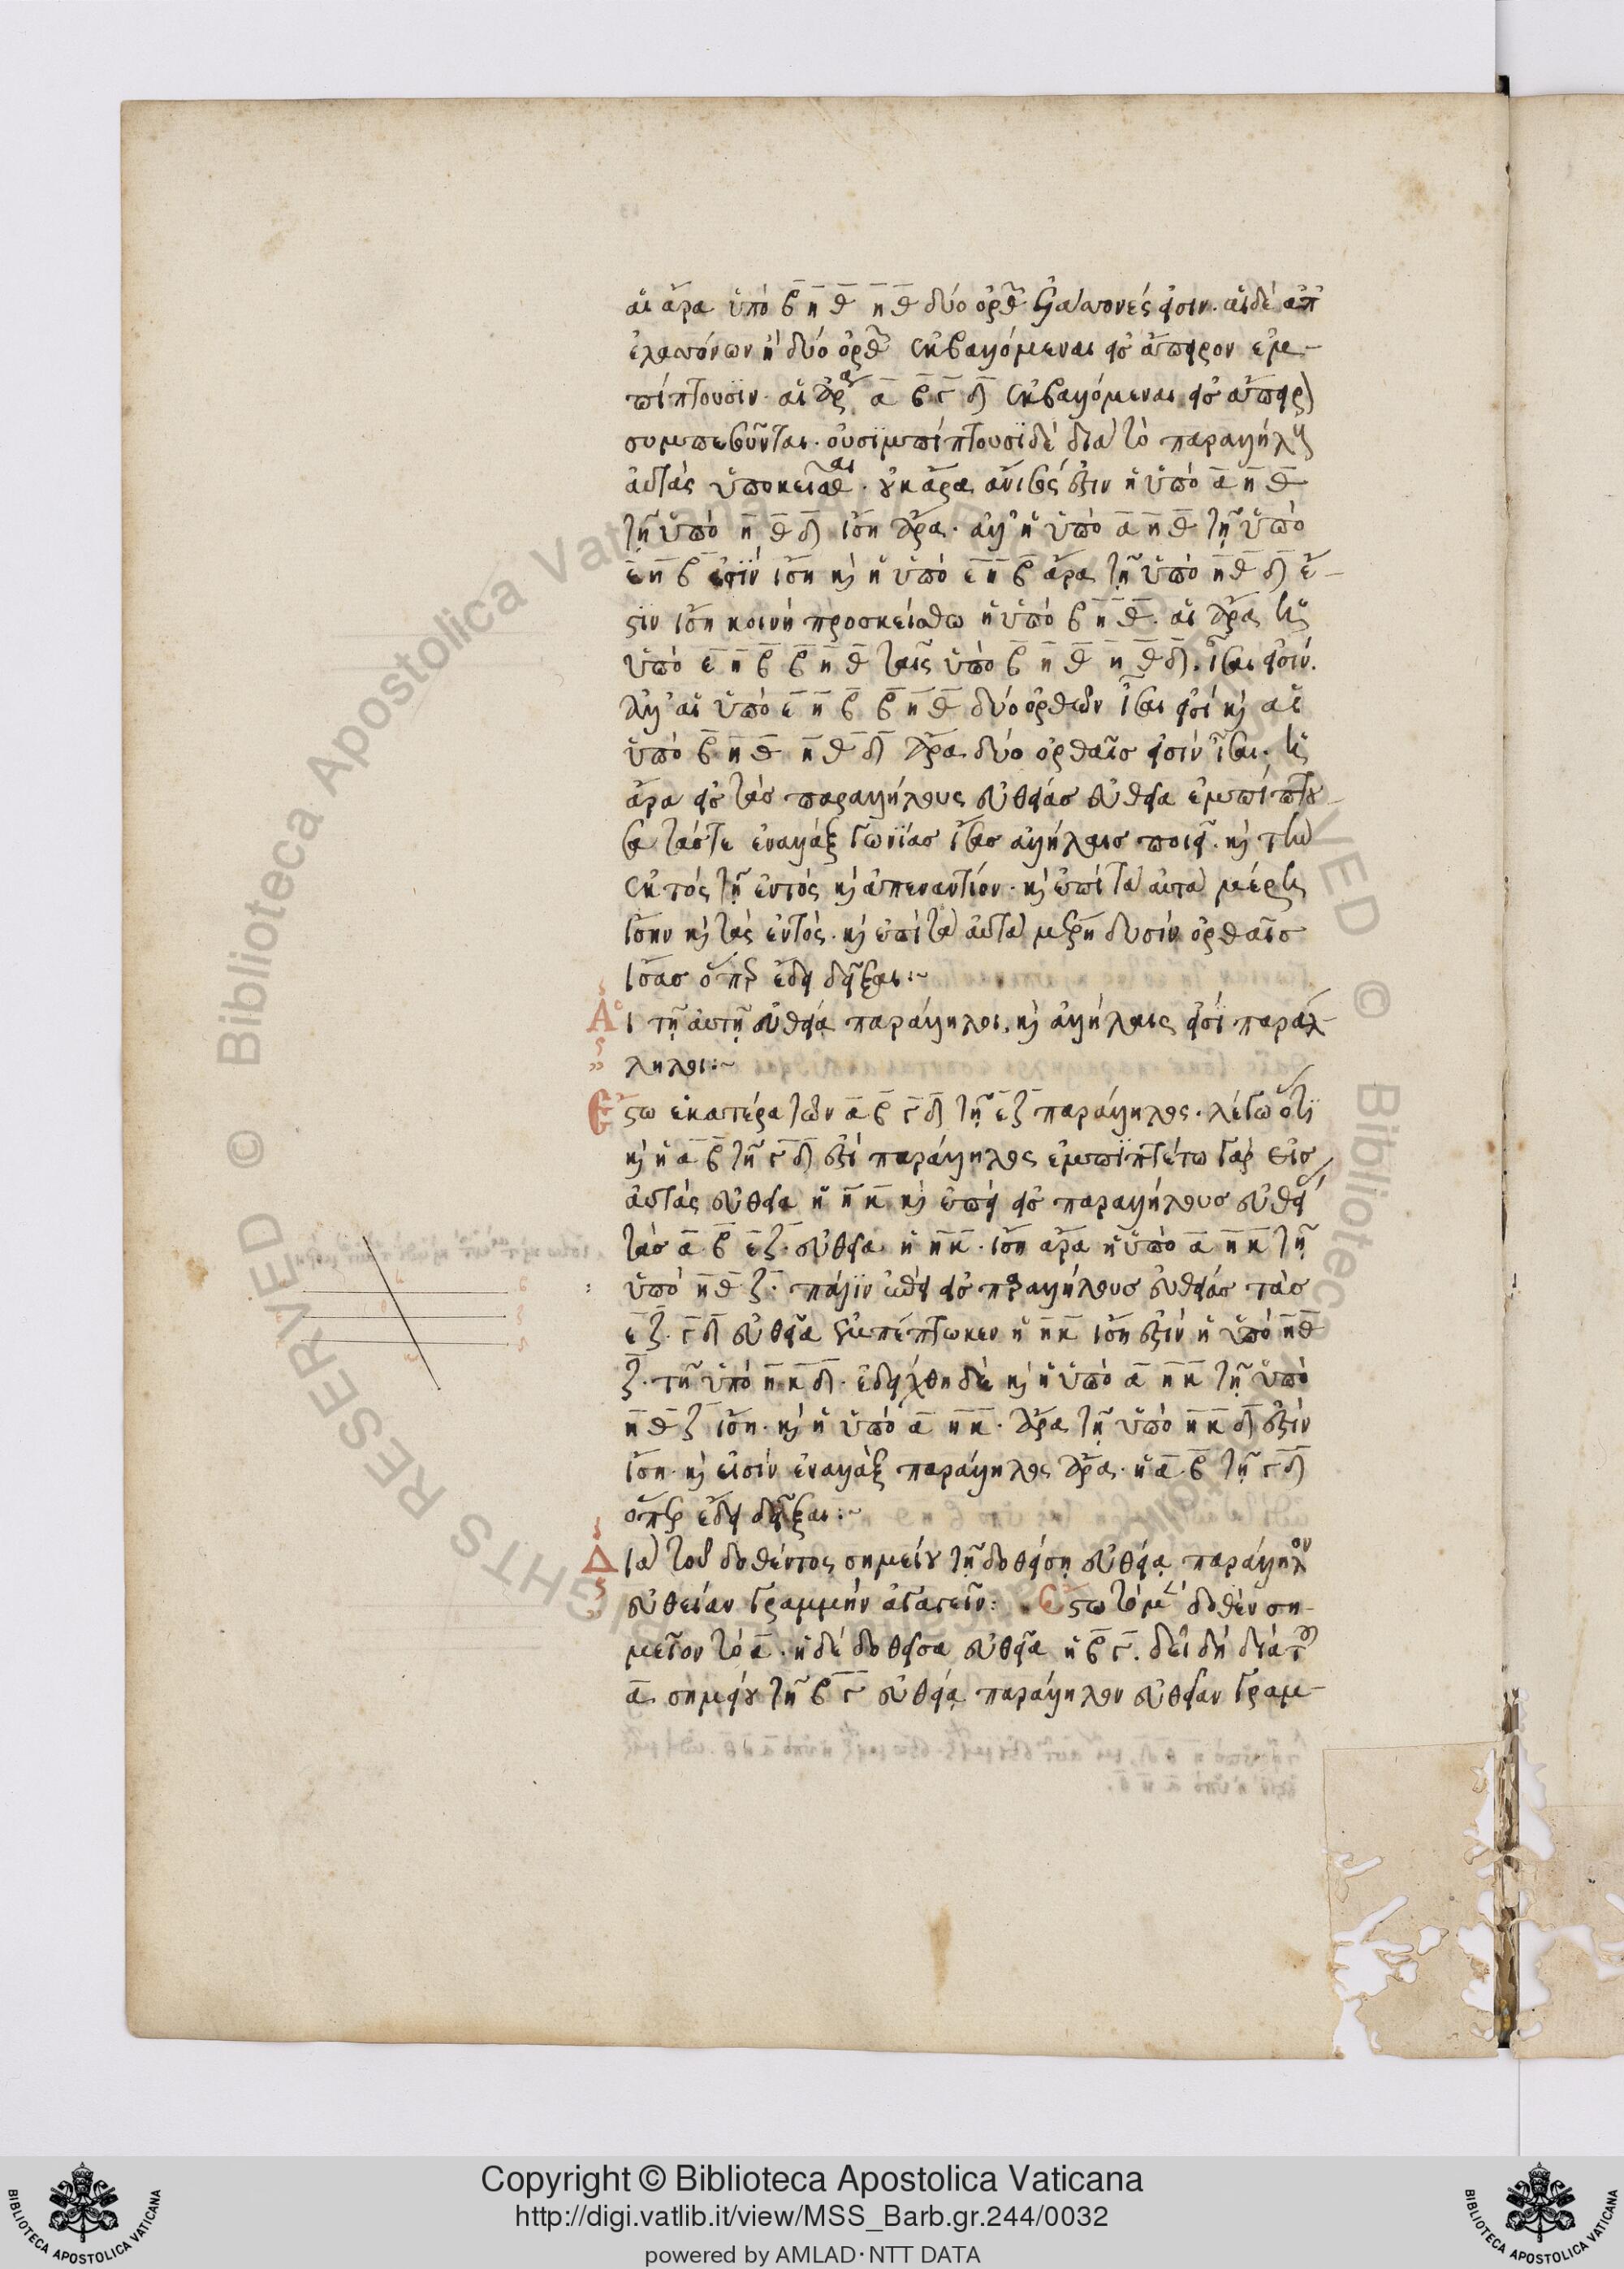 αἱ ἄρα ὑπὸ β η θ η θ δύο ὀρθ ἐλάσσονές εἰσιν. αἱ δὲ ἀπ
ἐλασσόνων ἢ δύο ὀρθ ἐκβαλλόμεναι εἰς ἄπειρον ἐμ-
πίπτουσιν. αἱ ἄρα α β γ δ ἐκβαλλόμεναι εἰς ἄπειρ
συμπεσοῦνται. οὐ συμπίπτουσι δὲ διὰ τὸ παραλλήλους
αὐτὰς ὑποκεῖσθαι. οὐκ ἄρα ἄνισός ἐστιν ἡ ὑπὸ α η θ
τῇ ὑπὸ η θ δ ἴση ἄρα. ἀλλ' ἡ ὑπὸ α η θ τῇ ὑπὸ
ε η β ἐστὶν ἴση καὶ ἡ ὑπὸ ε η β ἄρα τῇ ὑπὸ η θ δ ἔ-
στιν ἴση κοινὴ προσκείσθω ἡ ὑπὸ β η θ. αἱ ἄρα
ὑπὸ ε η β β η θ ταῖς ὑπὸ β η θ η θ δ. ἴσαι εἰσίν.
ἀλλ' αἱ ὑπὸ ε η β β η θ δύο ὀρθαῖν ἴσαι εἰσί καὶ αἱ
ὑπὸ β η θ η θ δ ἄρα δύο ὀρθαῖς εἰσὶν ἴσαι. ἡ
ἄρα εἰς τὰς παραλλήλους εὐθείας εὐθεῖα ἐμπίπτου-
σα τάς τε ἐναλλὰξ γωνίας ἴσας ἀλλήλαις ποιεῖ. καὶ τὴν
ἐκτὸς τῇ ἐντὸς καὶ ἀπεναντίον. καὶ ἐπὶ τὰ αὐτὰ μέρη
ἴσην καὶ τὰς ἐντὸς. καὶ ἐπὶ τὰ αὐτὰ μέρη δυσὶν ὀρθαῖς
ἴσας ὅπερ ἔδει δεῖξαι:~
Αἱ τῇ αὐτῇ εὐθείᾳ παράλληλοι, καὶ ἀλλήλαις εἰσὶ παράλ-
ληλοι:~
Ἔστω ἑκατέρα τῶν α β γ δ τῇ ε ζ παράλληλος. λέγω ὅτι
καὶ ἡ α β τῇ γ δ ἐστὶ παράλληλος ἐμπιπτέτω γὰρ εἰς
αὐτὰς εὐθεῖα ἡ η κ καὶ ἐπεὶ εἰς παραλλήλους εὐθεί
τὰς α β ε ζ. εὐθεῖα ἡ η κ. ἴση ἄρα ἡ ὑπὸ α η κ τῇ
ὑπὸ η θ ζ. πάλιν ἐπεὶ εἰς παραλλήλους εὐθείας τὰς
ε ζ. γ δ εὐθεῖα ἐμπέπτωκεν ἡ η κ ἴση ἐστὶν ἡ ὑπὸ η θ
ζ. τῇ ὑπὸ η κ δ. ἐδείχθη δὲ καὶ ἡ ὑπὸ α η κ τῇ ὑπὸ
η θ ζ ἴση. καὶ ἡ ὑπὸ α η κ. ἄρα τῇ ὑπὸ η κ δ ἐστὶν
ἴση. καὶ εἰσὶν ἐναλλὰξ παράλληλος ἄρα. ἡ α β τῇ γ δ
ὅπερ ἔδει δεῖξαι:~
Διὰ τοῦ δοθέντος σημείου τῇ δοθείσῃ εὐθείᾳ παράλληλον
εὐθείαν γραμμὴν ἀγαγεῖν: Ἔστω τὸ μὲν δοθὲν ση-
μεῖον τὸ α. ἡ δὲ δοθεῖσα εὐθεῖα ἡ β γ. δεῖ δὴ διὰ τοῦ
α σημείου τῇ β γ εὐθείᾳ παράλληλον εὐθεῖαν γραμ-
Copyright © Biblioteca Apostolica Vaticana
http://digi.vatlib.it/view/MSS_Barb.gr.244/0032
powered by AMLAD·NTT DATA